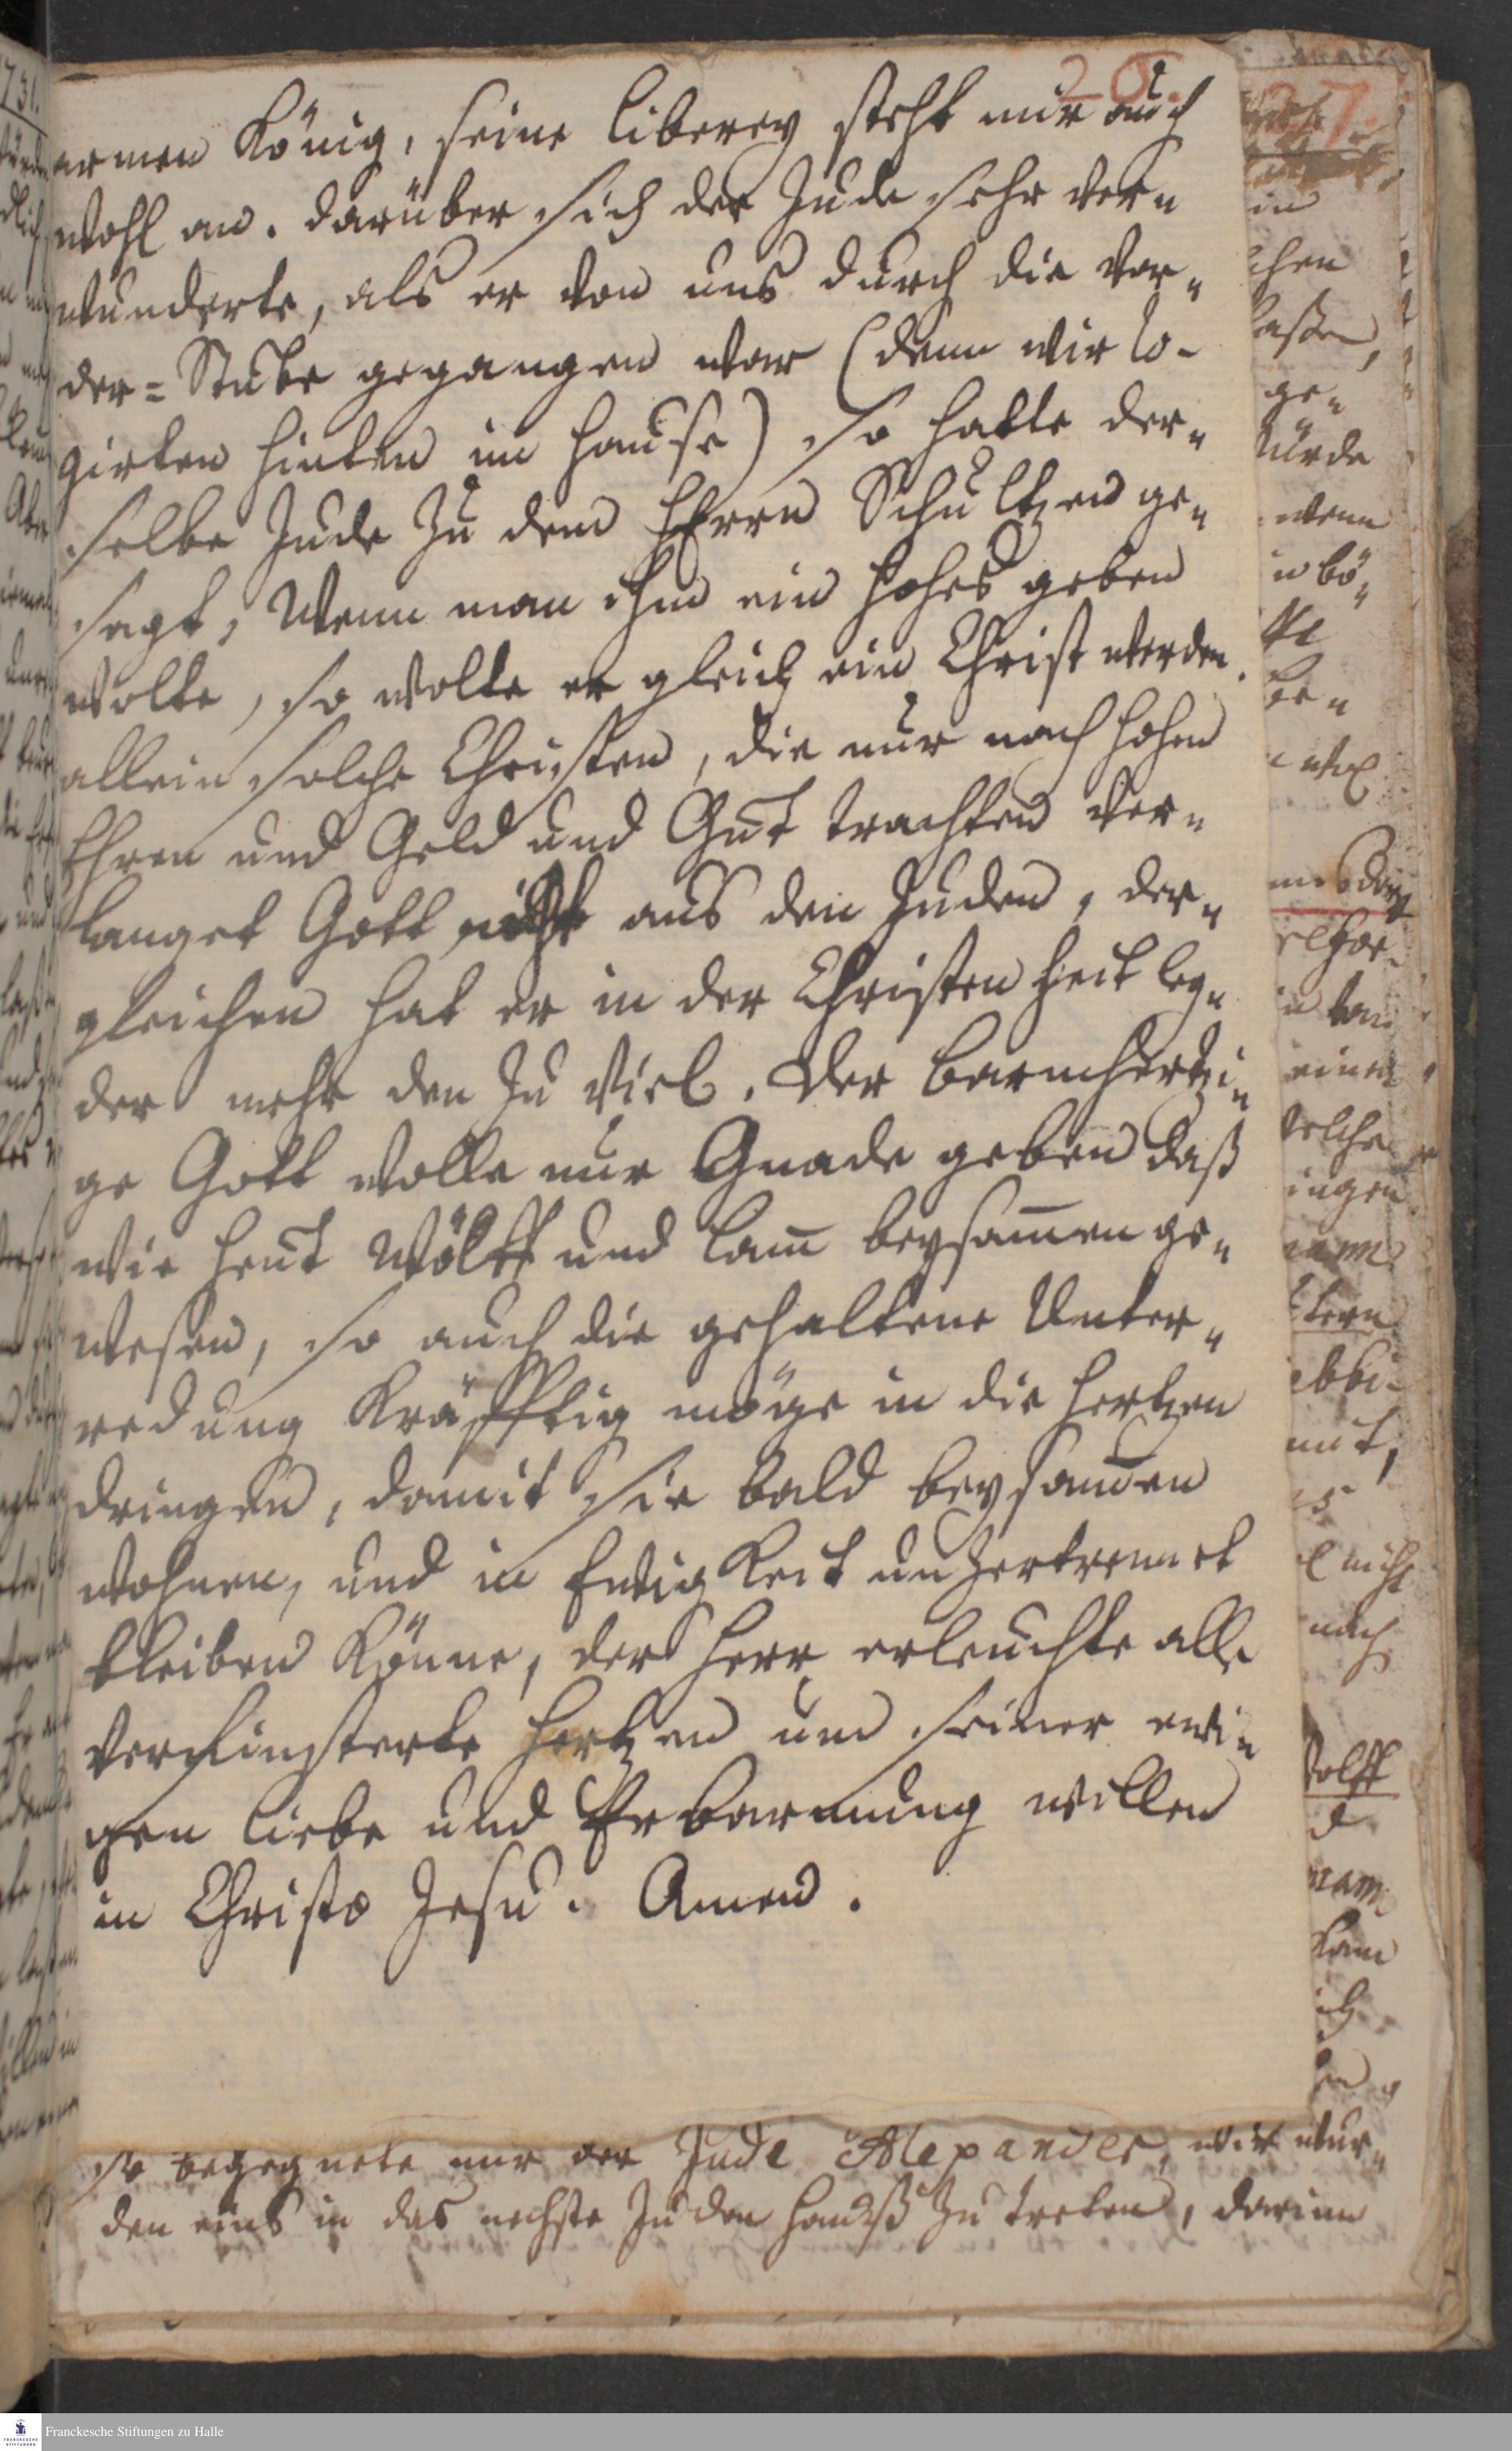 26.
armen König, seine liberey steht mir auch
wohl an. darüber sich der Jude sehr ver¬
wunderte, als er von uns durch die vor¬
der=Stube gegangen war (denn wir lo-
girten hinten im Hause) so hatte der¬
selbe Jude zu dem Herrn Schultzen ge¬
sagt, Wenn man ihm ein hohes geben
wolte, so wolte er gleich ein Christ werden.
allein solche Christen, die nur nach hohen
Ehren und Geld und Gut trachten ver¬
langet Gott nicht aus den Juden, der¬
gleichen hat er in der Christenheit ley¬
der mehr den zu viel. Der barmhertzi¬
ge Gott wolle nur Gnade geben daß
wie heut Wölff und lam̅ beysam̅en ge¬
wesen, so auch die gehaltene Unter¬
redung Kräfftig möge in die hertzen
dringen, damit sie bald beysam̅en
wohnen, und in Ewigkeit unzertrennet
bleiben Könne, der Herr erleuchte alle
verfinsterte hertzen um seiner ewi¬
gen liebe und Erbarmung willen
in Christo Jesu. Amen.
so begegnete mir der Jude Alexander, wir wur¬
den eins in das nechste Juden hauß zu treten, darinn
27.
in
chen
laßen,
ge¬
würde
wenn
in bö¬
be¬
einem
welche
ingen
ebbi-
mit,
nicht
nach
Wolff
kam
731.
Franckesche Stiftungen zu Halle